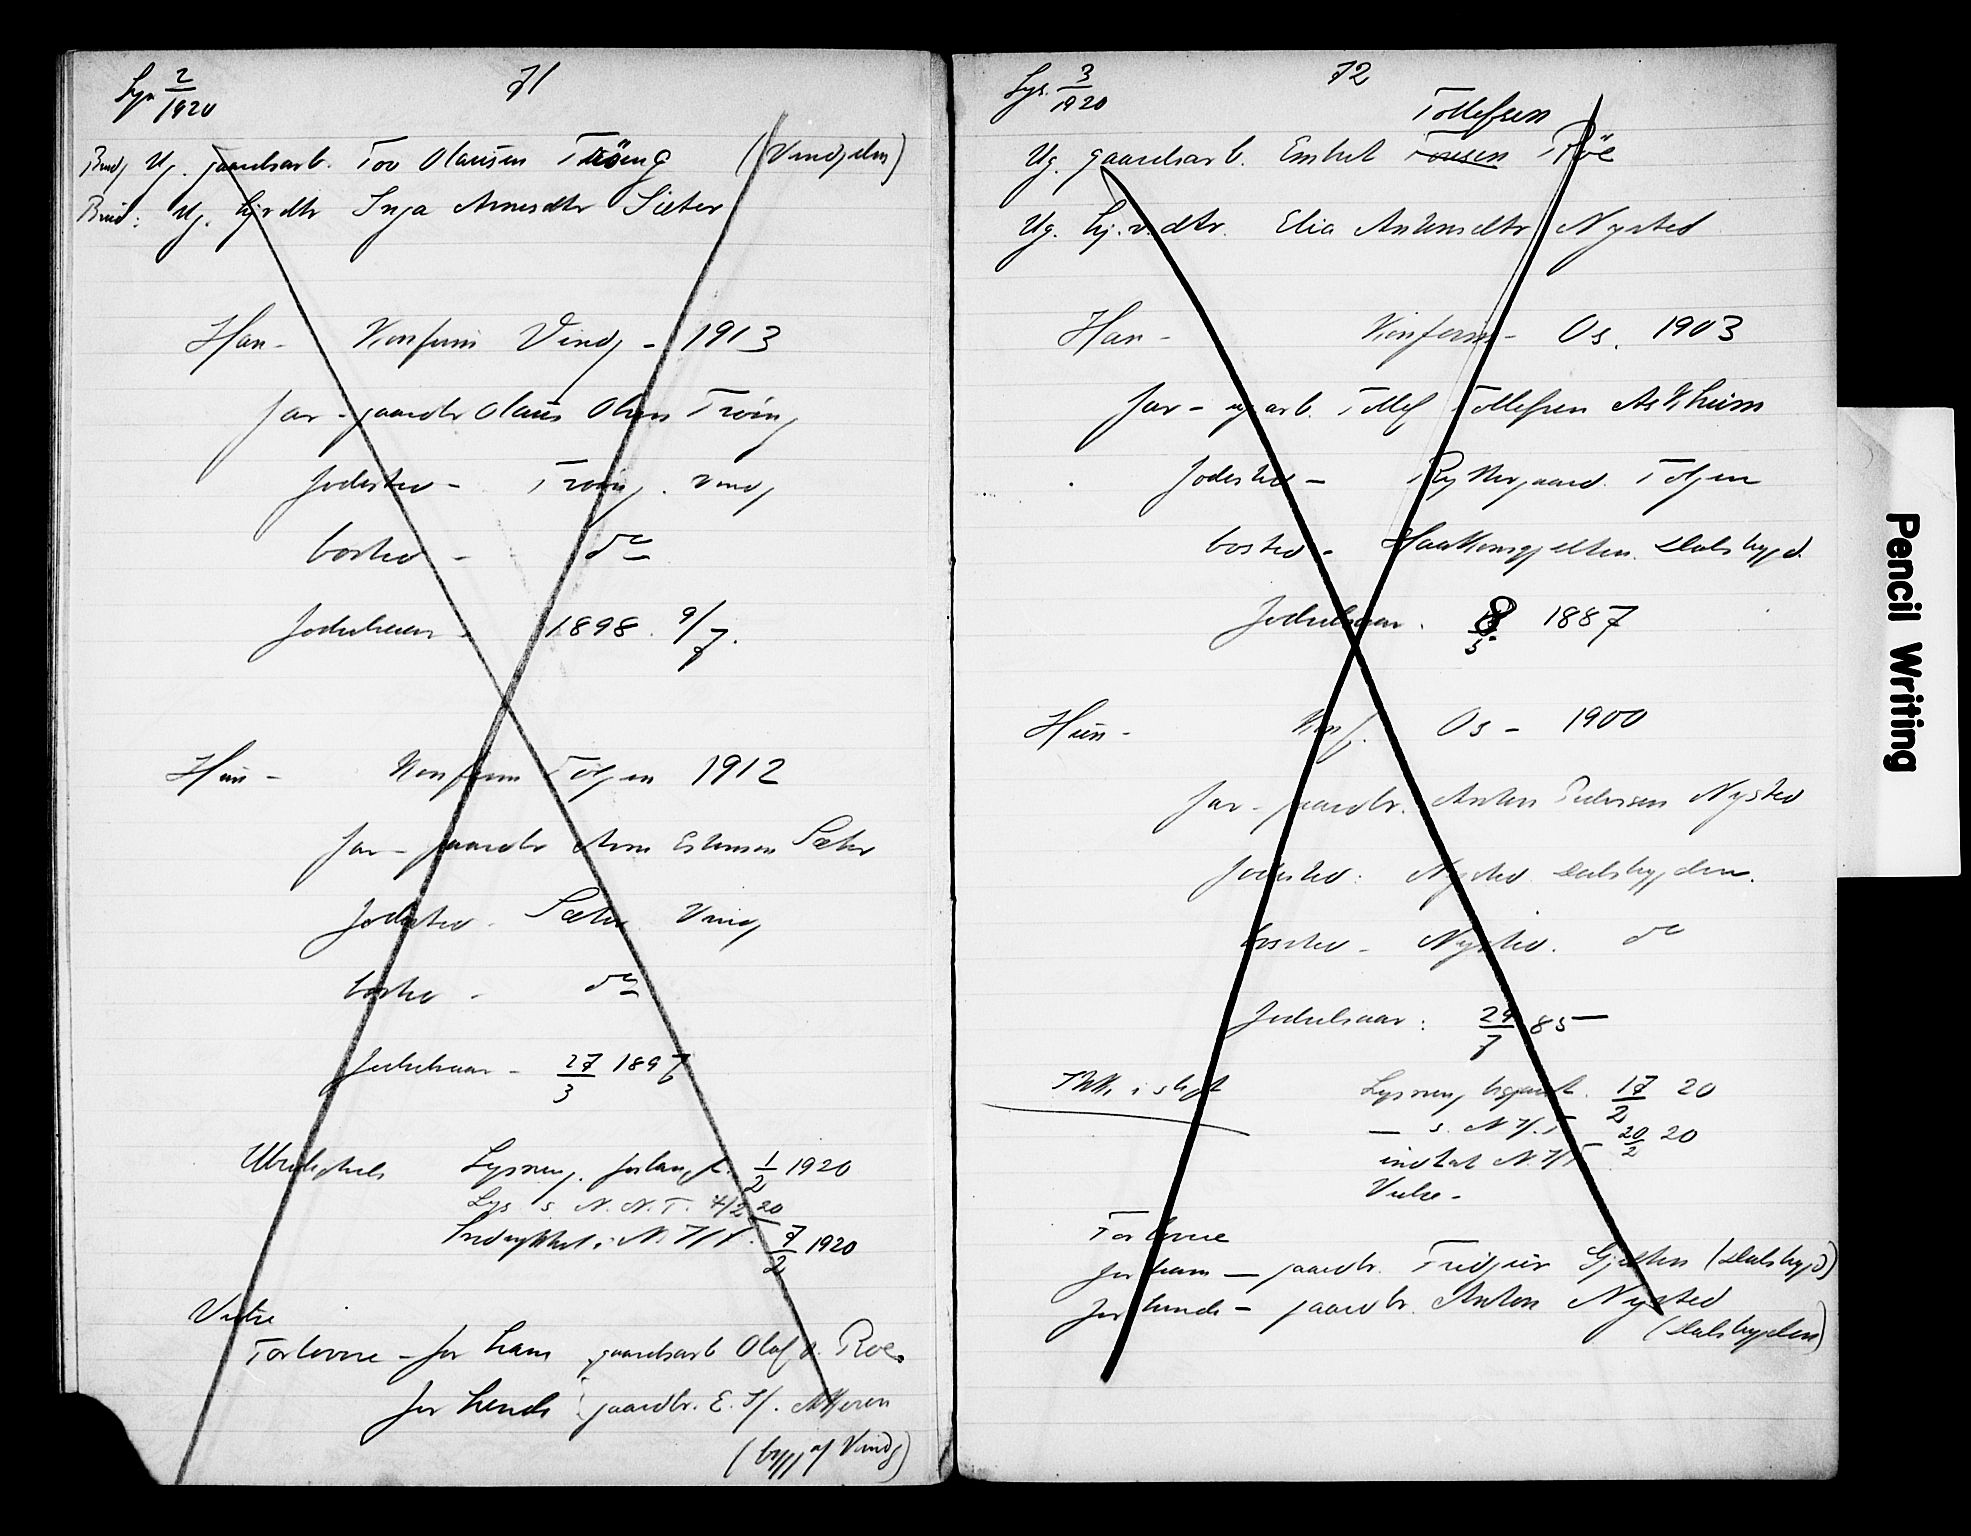 Lys 2/1920
71
Ug. gaardsarb. Tov Olausen Trøeng (Vingelen)
Brud: Ug. hj.v.dtr Inga Arnesdtr Sæter
Han - Konfirm Ving - 1913
Far - gaardbr Olaus Olsen Trøeng
Fødested - Trøeng. Ving
bosted - do
Fødselsaar - 1898. 9/7.
Hun - Konfirm Tolgen 1912
Far - gaardbr Arne Estensen Sæter
Fødested - Sæter Ving
bosted - do
Fødselsaar - 27/3 1897
Lysning forlangt. 1/2 1920
Lys s. N. N. T. 4/2 20
Indrykket i N. H. T. 7/2 1920
Vidne
Forlovere - for ham gaardsarb Olaf Røe.
for hende gaardbr. E. H.
(bygg af Ving)
Lys. 3/1920
72
Tollefsen
Ug. gaardsarb. Embret Røe
Ug. hj.v.dtr. Elia Antonsdtr Nysted
Han - Konfirm - Os. 1903
Far - arb. Tollef Tollefsen Askheim
Fødested - Ryttergaard. Tolgen
bosted - Haakonsgjelten. Dalsbygd.
Fødselsaar. 8/5. 1887
Hun - Konf. Os - 1900
Far - gaardbr. Anton Pedersen Nysted
Fødested: Nysted Dalsbygden.
bosted - Nysted. do
Fødselsaar: 29/7 85
Ikke i slegt
Lysning begjært. 17/2 20
— s. N. H. T 20/2 20
indtat N. H. T
Vidne -
Forlovere
for ham — gaardbr. Gjelten (Dalsbygd)
for hende - gaardbr. Anton Nysted
(Dalsbygden)
Pencil Writing